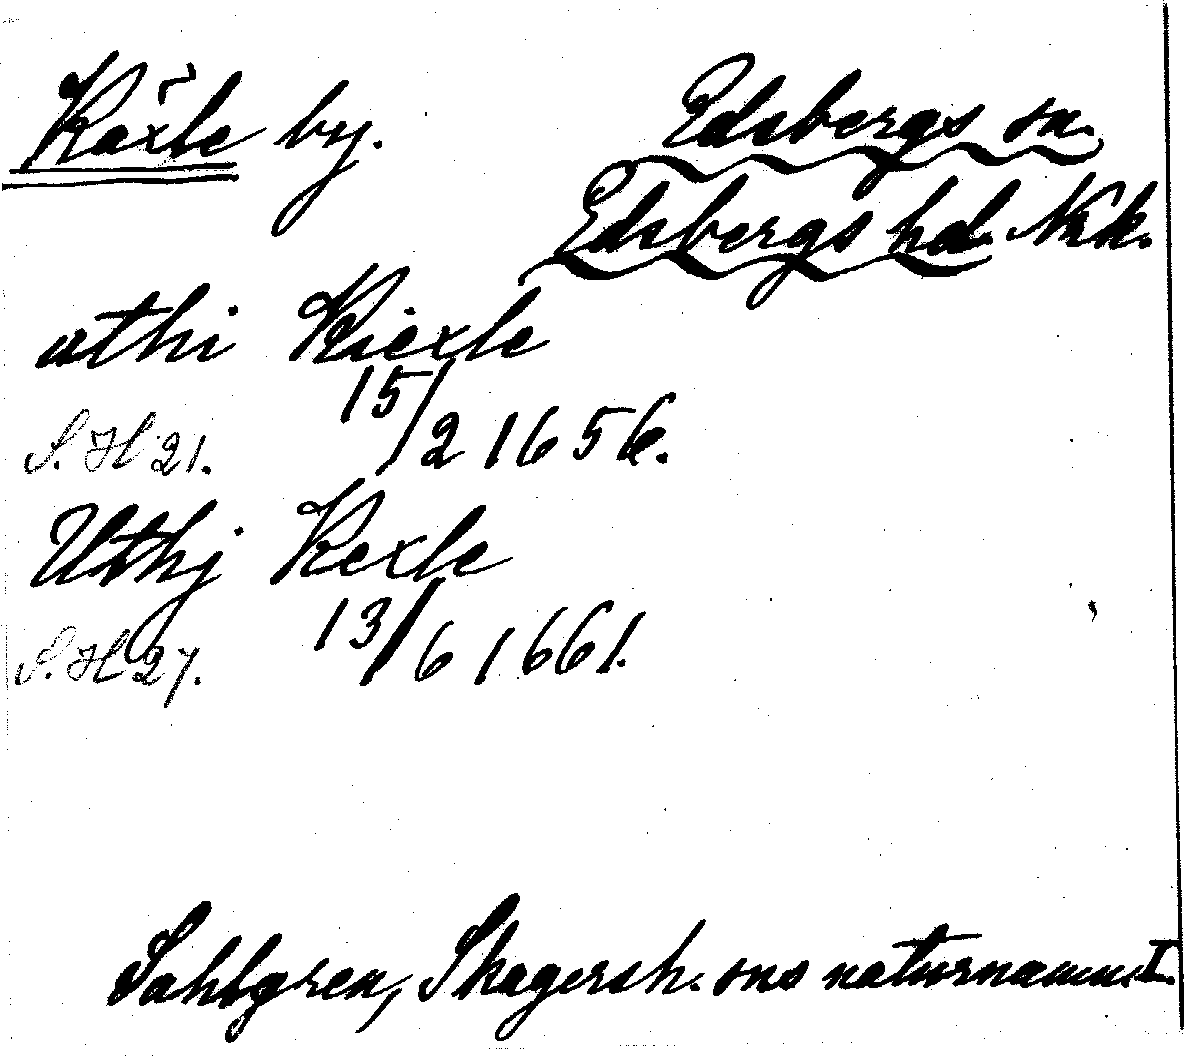 Käxle by. Edsbergs sn.
Edsbergs hd. Nke.
uthi Kiexle
15/2 1656.
S.H 21.
Uthj Kexle
13/6 1661.
S.H 27.
Sahlgren, Skagersh. sns naturnamn I.